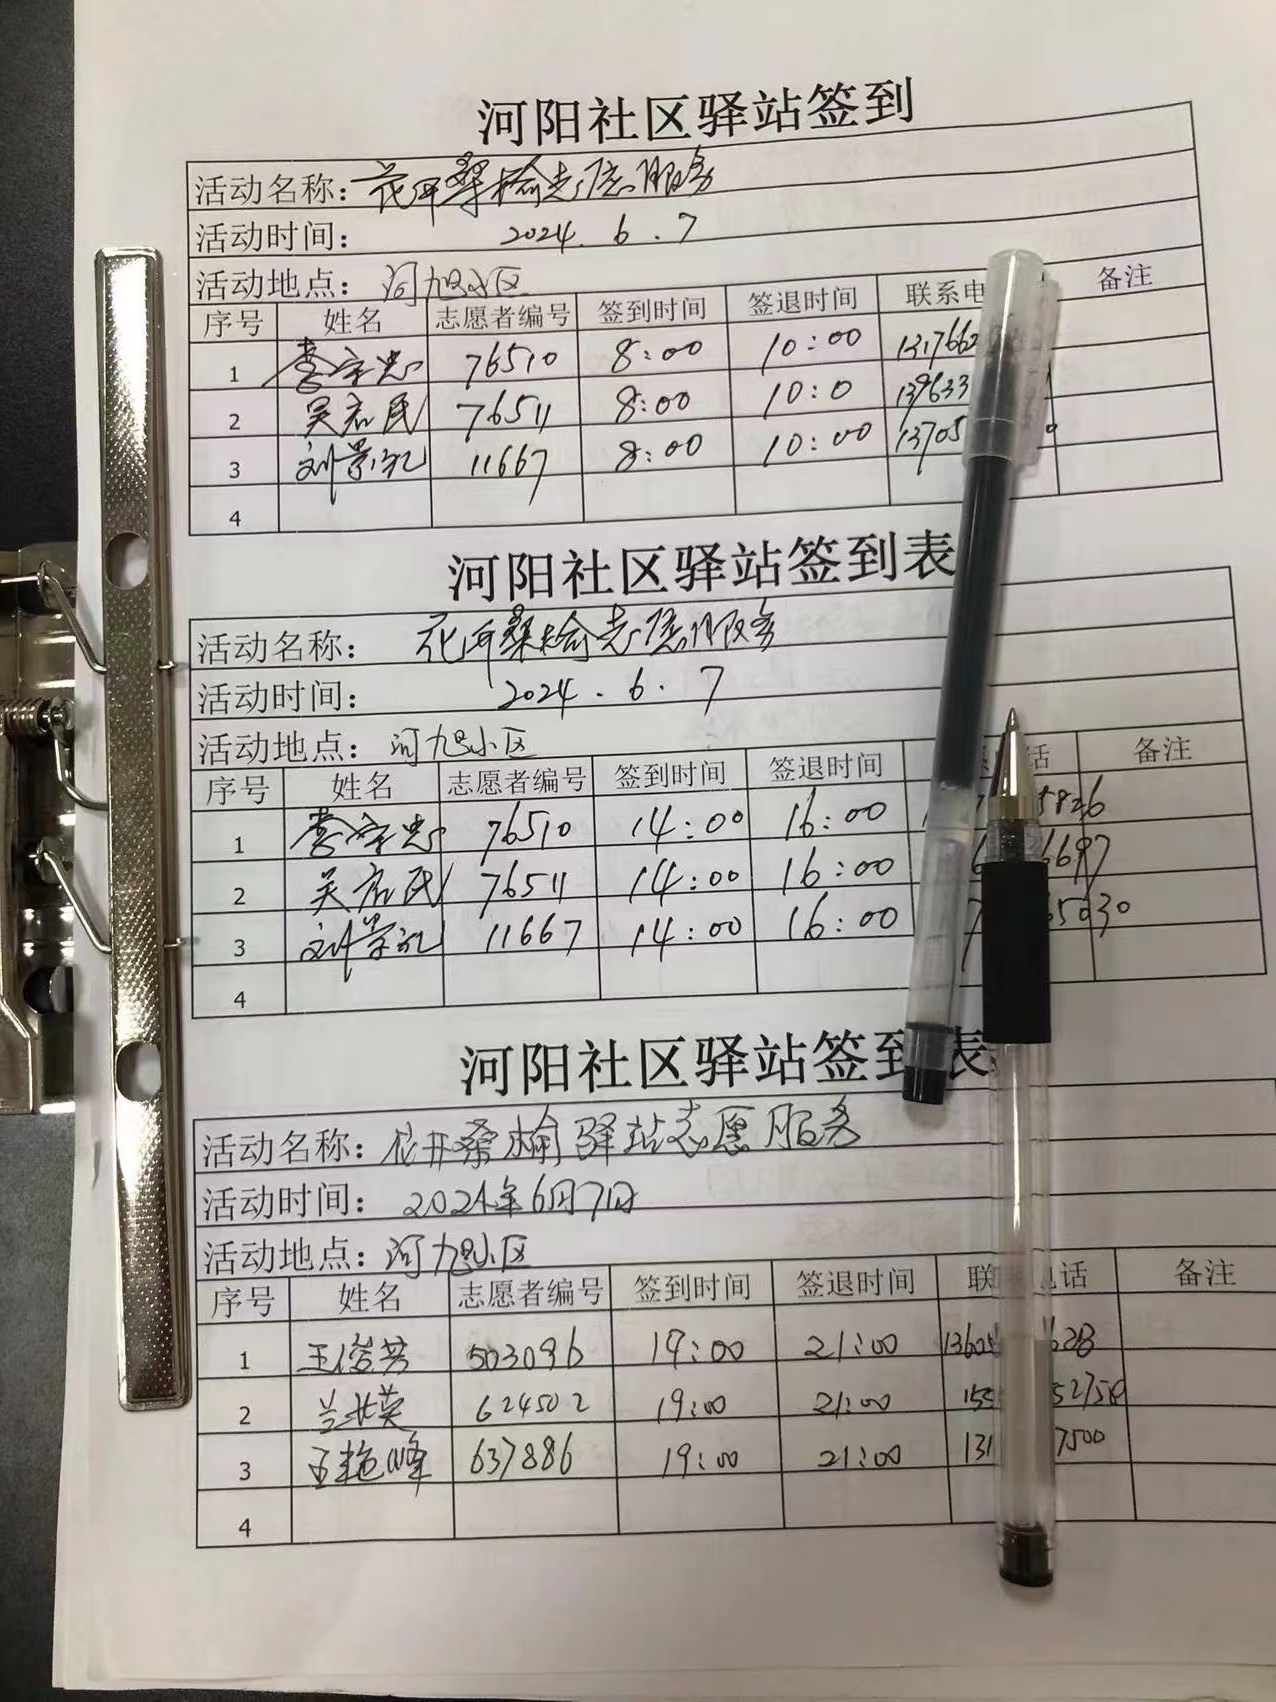 河阳社区驿站签到
活动名称：花井桑榆志愿服务
活动时间： 2024.6.7
活动地点： 河旭小区
序号 姓名 志愿者编号 签到时间 签退时间 联系电 备注
1 76510 8:00 10:00
2 76511 8:00 10:0
3 11667 8:00 10:00
4
河阳社区驿站签到表
活动名称： 花井桑榆志愿服务
活动时间： 2024.6.7
活动地点： 河旭小区
序号 姓名 志愿者编号 签到时间 签退时间 话 备注
1 76510 14:00 16:00 5826
2 76511 14:00 16:00 6697
3 11667 14:00 16:00 5030
4
河阳社区驿站签到表
活动名称：花井桑榆驿站志愿服务
活动时间： 2024年6月7日
活动地点：河旭小区
序号 姓名 志愿者编号 签到时间 签退时间 联 电话 备注
1 王俊芳 503096 19:00 21:00
2 兰北英 624502 19:00 21:00
3 王艳峰 637886 19:00 21:00 131 7500
4